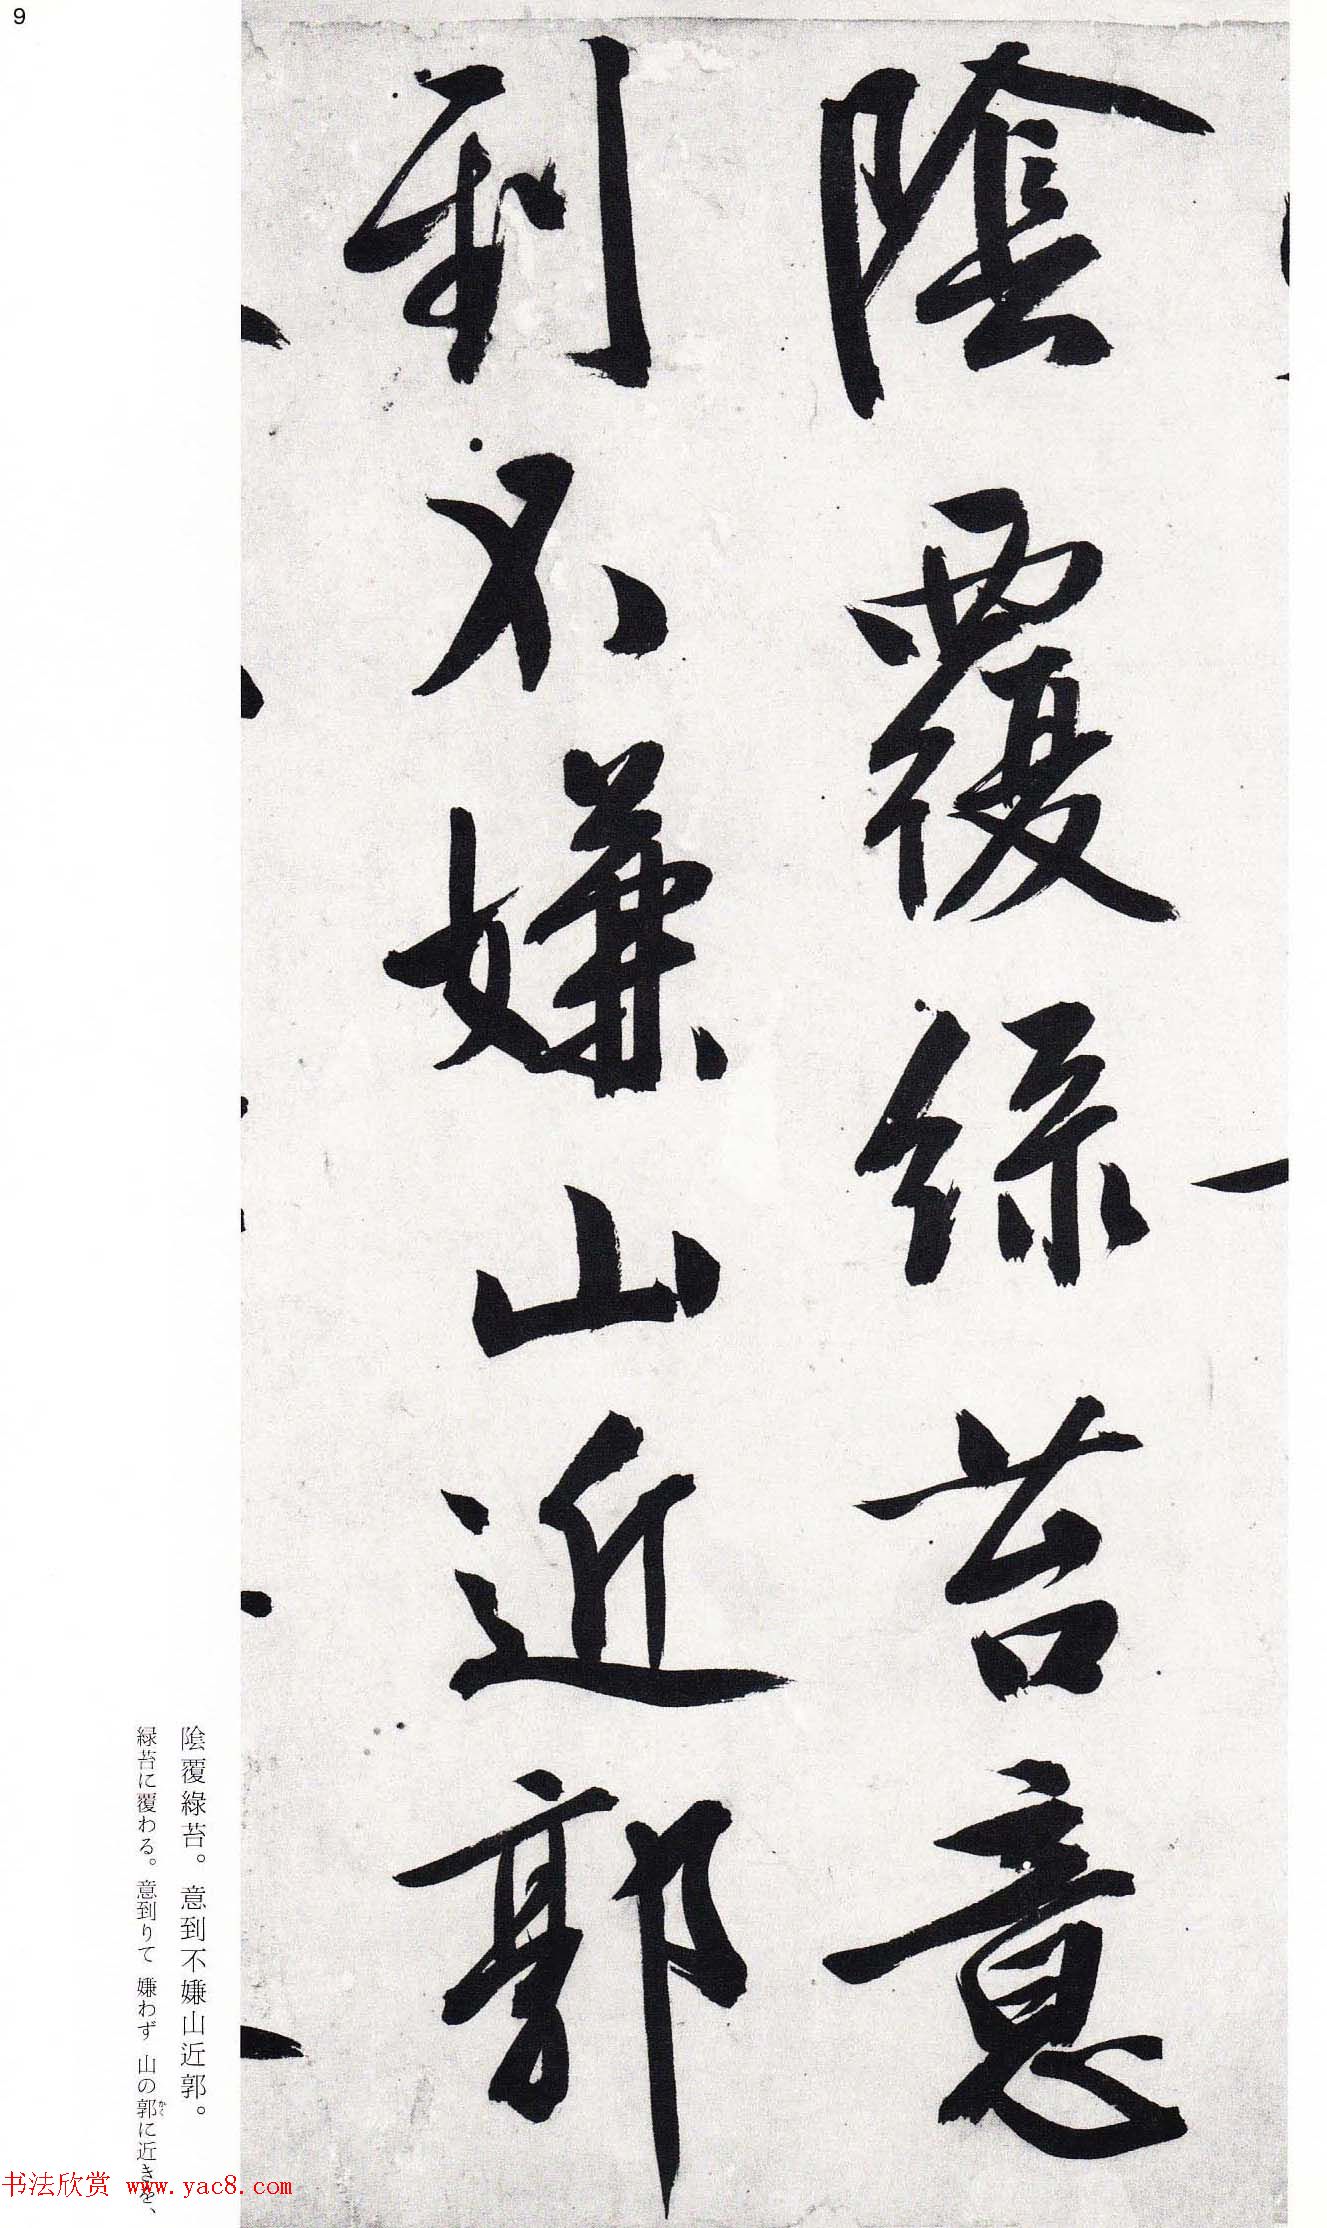 9
陰覆綠苔意
到不嫌山近郭
陰覆綠苔。意到不嫌山近郭。
緑苔に覆わる。意到りて 嫌わず 山の郭に近きを、
かく
书法欣赏 www.yac8.com